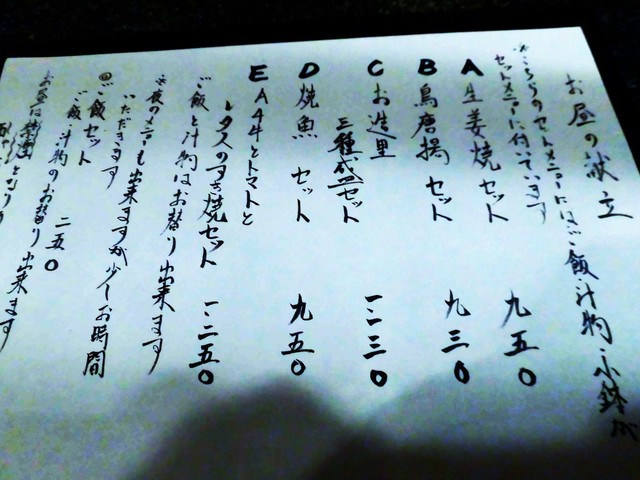 お昼の献立
※こちらのセットメニューにはご飯・汁物・小鉢が
セットメニューに付いています
A 生姜焼セット 九五〇
B 鳥唐揚セット 九三〇
C お造里
三種盛セット 一、二三〇
D 焼魚セット 九五〇
E A4牛とトマトと
レタスのすき焼セット 一、二五〇
ご飯と汁物はお替り出来ます
※夜のメニューも出来ますが少しお時間
いただきます
◎ご飯セット 二五〇
ご飯・汁物のお替り出来ます
お昼は